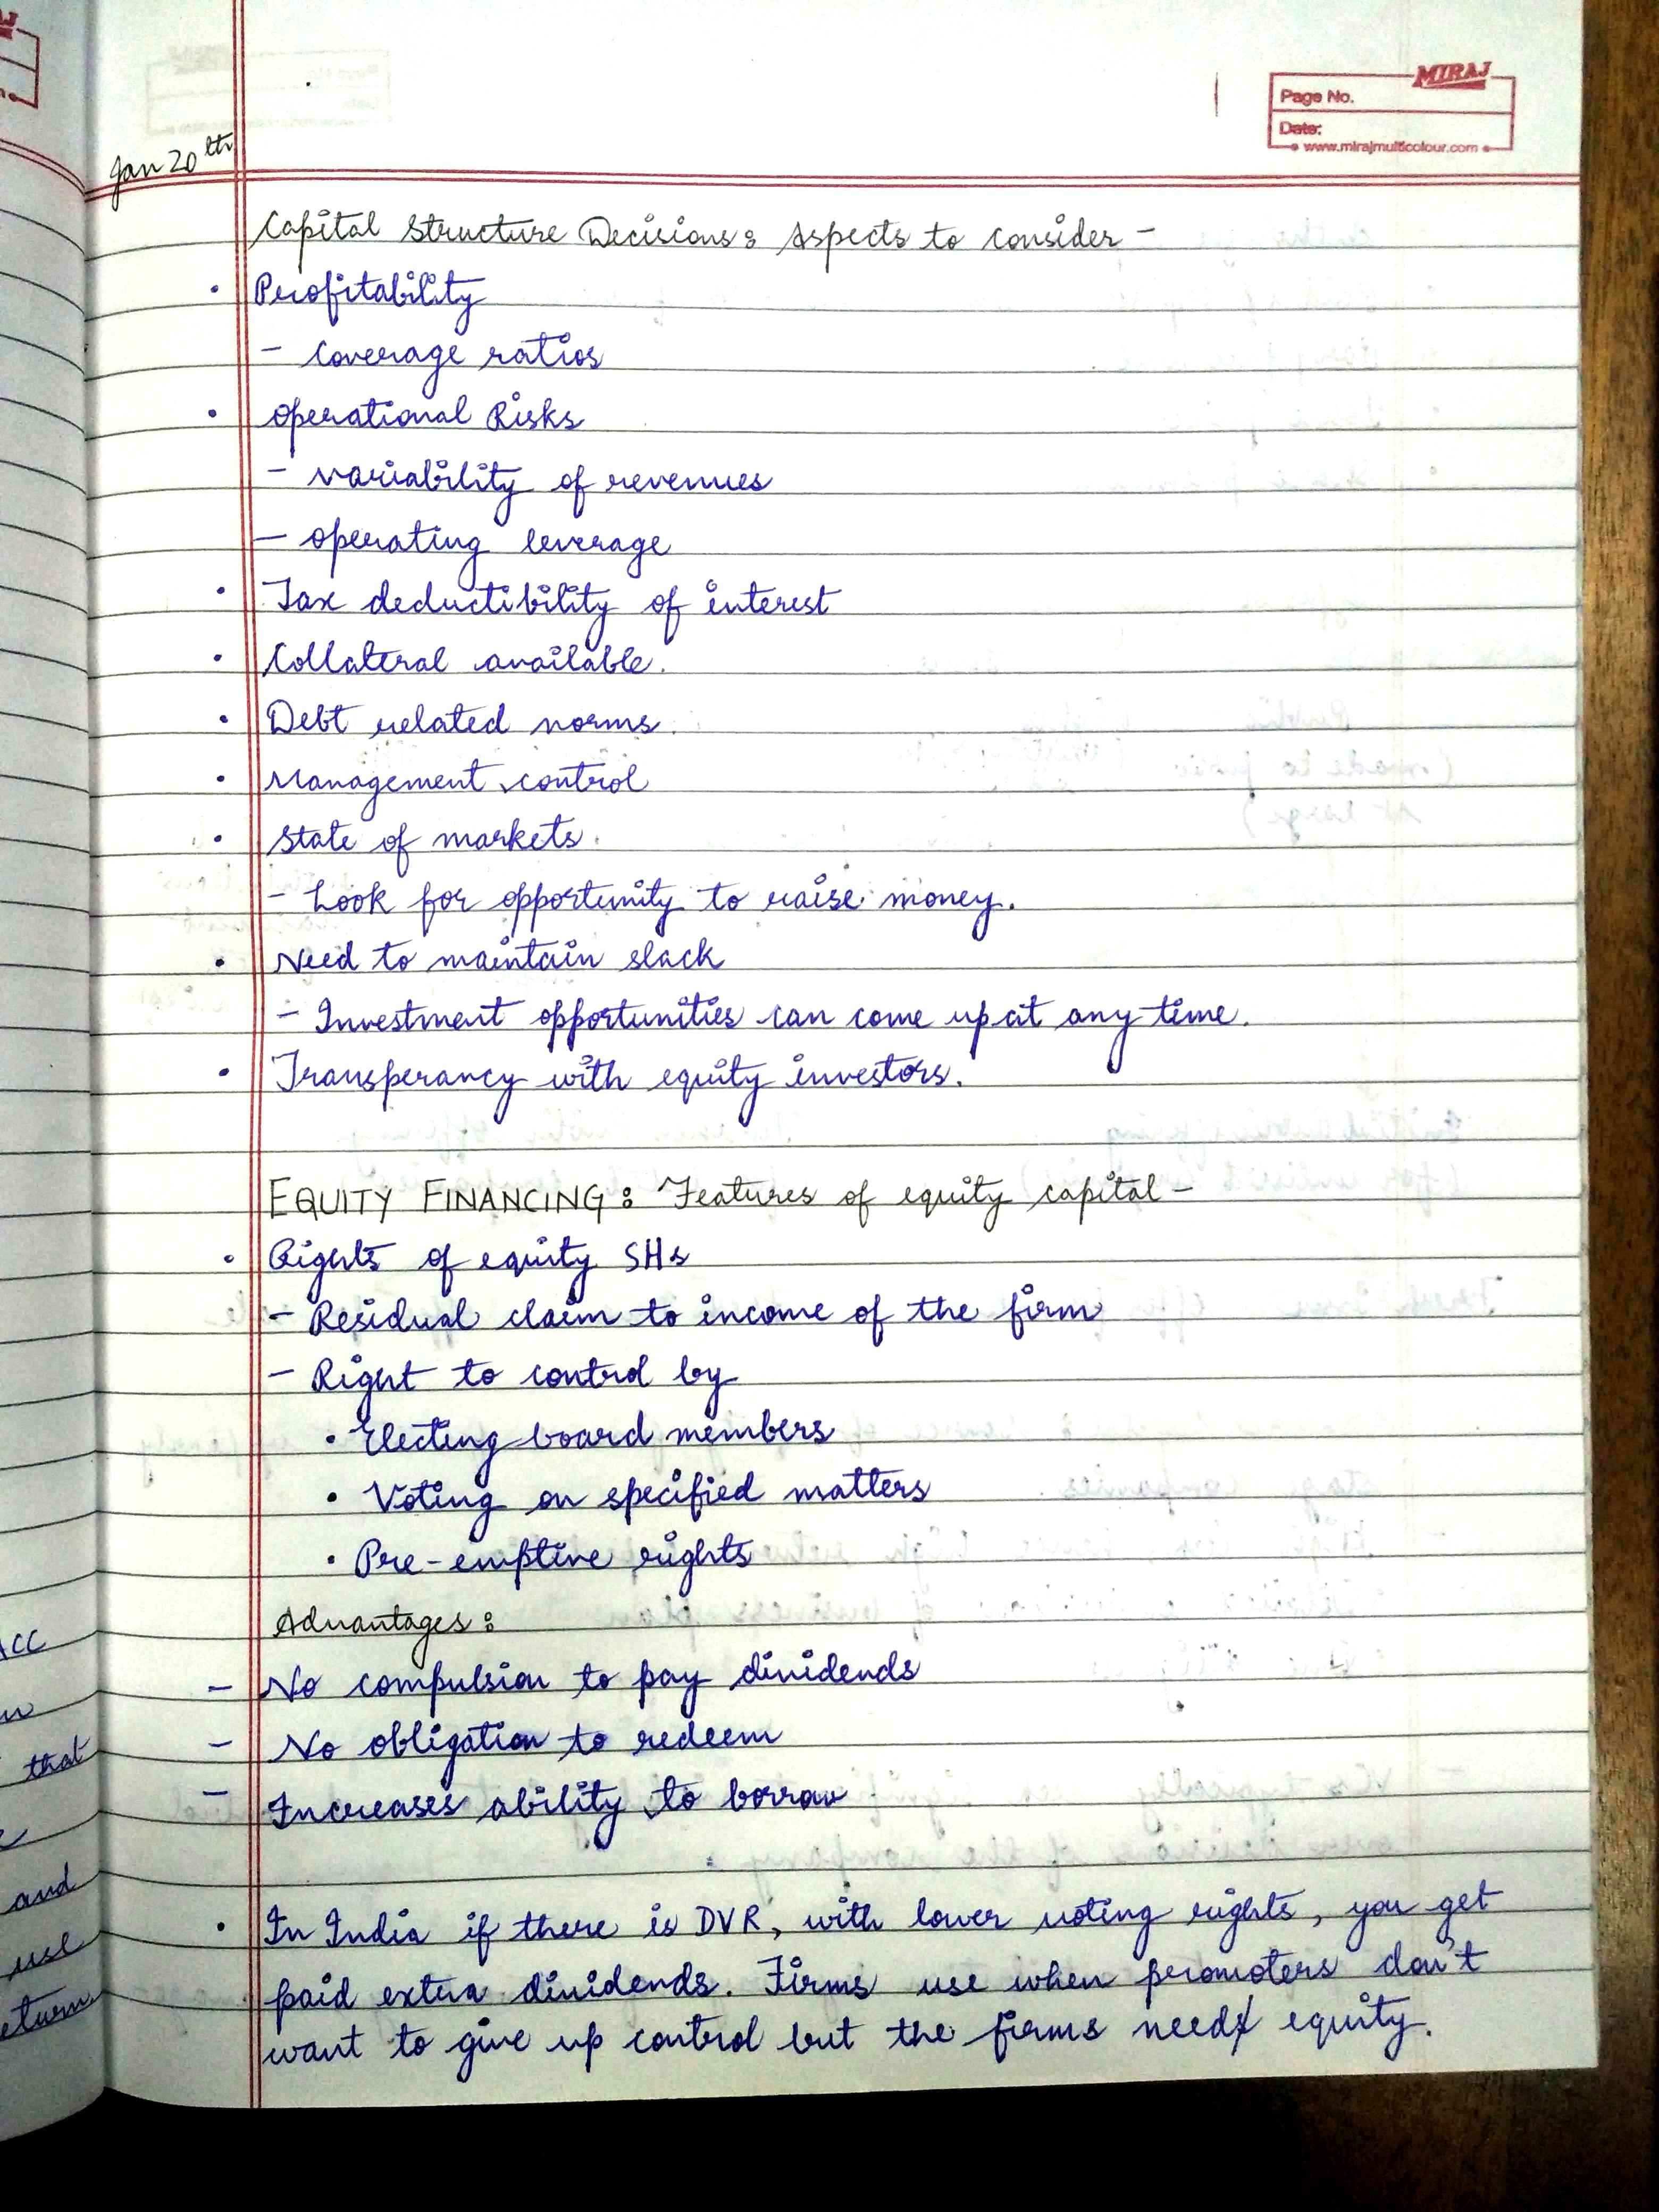 MIRAJ
Page No.
Date:
www.mirajmulticolour.com
Jan 20th
Capital Structure Decisions: Aspects to consider -
• Profitability
- Coverage ratios
• Operational Risks
- variability of revenues
- operating leverage
• Tax deductibility of interest
• Collateral available.
• Debt related norms.
• Management control
• State of markets.
- Look for opportunity to raise money.
• Need to maintain slack
- Investment opportunities can come up at any time.
• Transperancy with equity investors.
EQUITY FINANCING: Features of equity capital -
• Rights of equity SHs
- Residual claim to income of the firm
- Right to control by
• Electing board members
• Voting on specified matters
• Pre-emptive rights
Advantages:
- No compulsion to pay dividends
- No obligation to redeem
- Increases ability to borrow
• In India if there is DVR, with lower voting rights, you get
paid extra dividends. Firms use when promoters don't
want to give up control but the firms need equity.
that
and
use